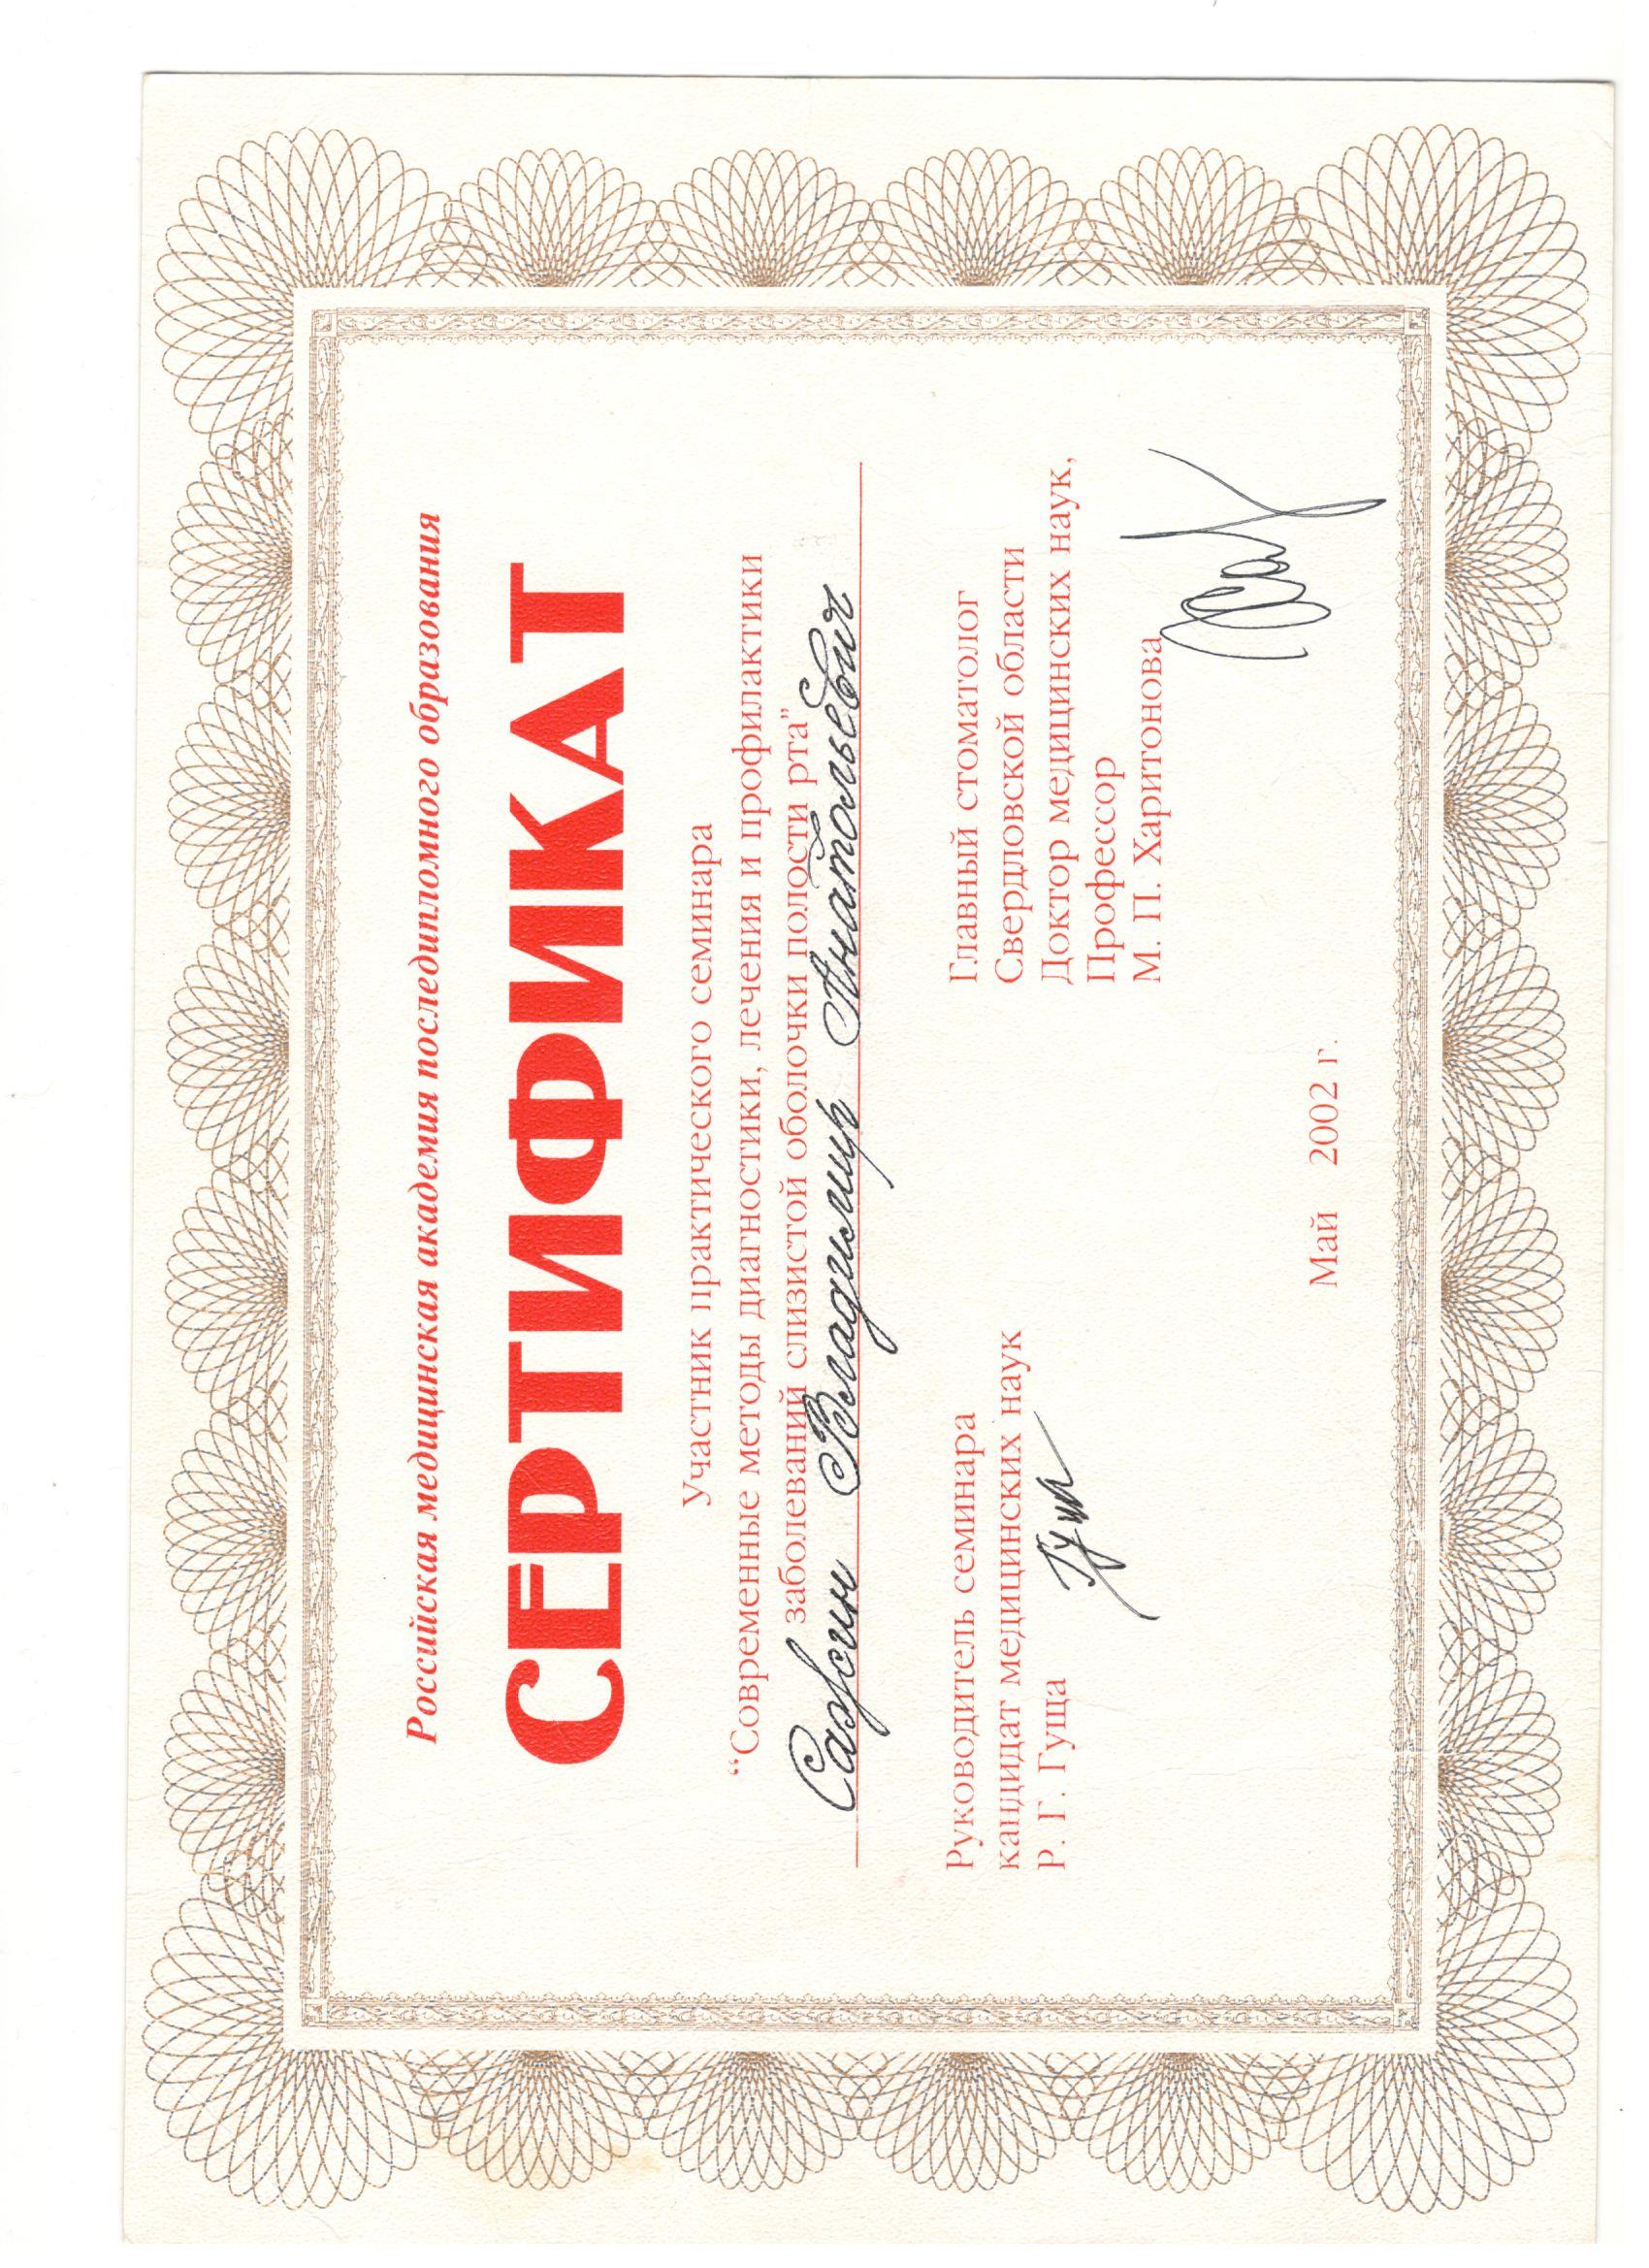 Российская медицинская академия последипломного образования
СЕРТИФИКАТ
Участник практического семинара
“Современные методы диагностики, лечения и профилактики
заболеваний слизистой оболочки полости рта”
Сажин Владимир Анатольевич
Руководитель семинара
кандидат медицинских наук
Р. Г. Гуща
Главный стоматолог
Свердловской области
Доктор медицинских наук,
Профессор
М. П. Харитонова
Май 2002 г.